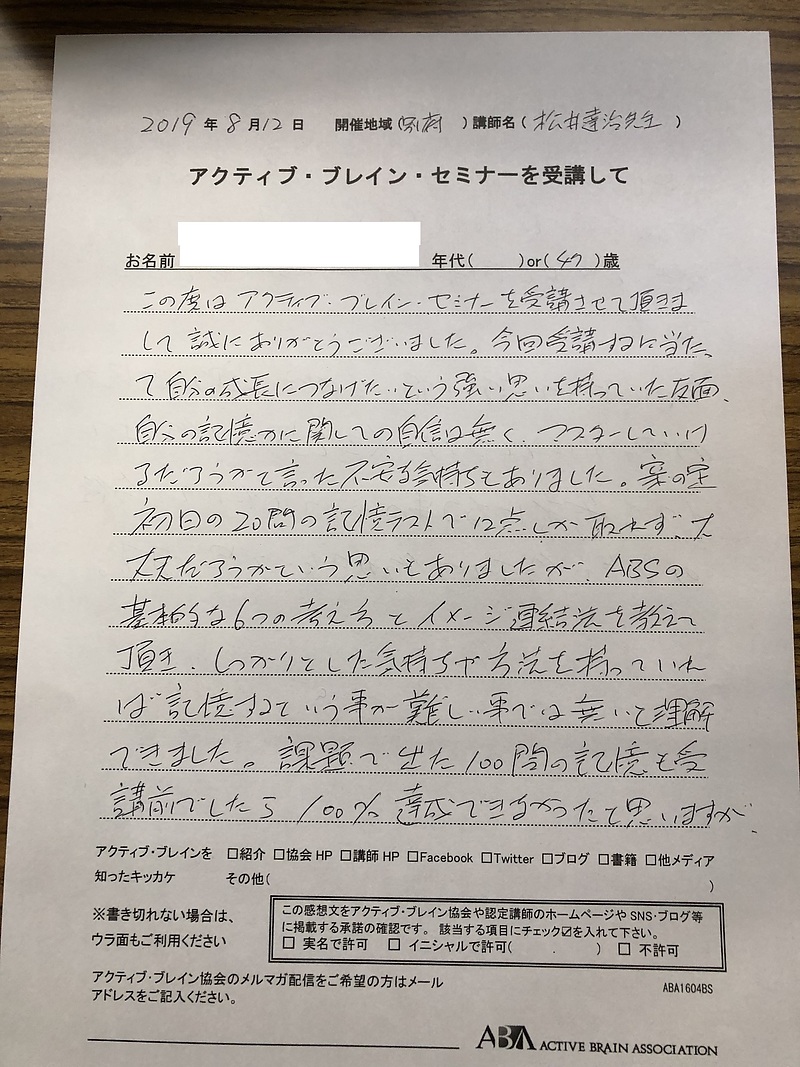 2019 年 8 月 12 日 開催地域 (別府 ) 講師名 ( 松井達治先生 )
アクティブ・ブレイン・セミナーを受講して
お名前 年代( )or( 47 )歳
この度は アクティブ・ブレイン・セミナーを受講させて頂きま
して 誠にありがとうございました。今回受講するに当たっ
て自分の成長につなげたいという強い思いを持っていた反面、
自分の記憶力に関しての自信は無く、マスターしていけ
るだろうかと言った不安な気持ちもありました。案の定
初日の20問の記憶テストで12点しか取れず、大
丈夫だろうかという思いもありましたが、ABSの
基本的な6つの考え方とイメージ連結法を教えて
頂き、しっかりとした気持ちや方法を持っていれ
ば記憶するという事が難しい事では無いと理解
できました。課題で出た100問の記憶も受
講前でしたら100%達成できなかったと思いますが、
アクティブ・ブレインを □紹介 □協会 HP □講師 HP □Facebook □Twitter □ブログ □書籍 □他メディア
知ったキッカケ その他( )
※書き切れない場合は、
ウラ面もご利用ください
この感想文をアクティブ・ブレイン協会や認定講師のホームページや SNS・ブログ等
に掲載する承諾の確認です。 該当する項目にチェック☑を入れて下さい。
□ 実名で許可 □ イニシャルで許可( . ) □ 不許可
アクティブ・ブレイン協会のメルマガ配信をご希望の方はメール
アドレスをご記入ください。
ABA1604BS
ABA ACTIVE BRAIN ASSOCIATION